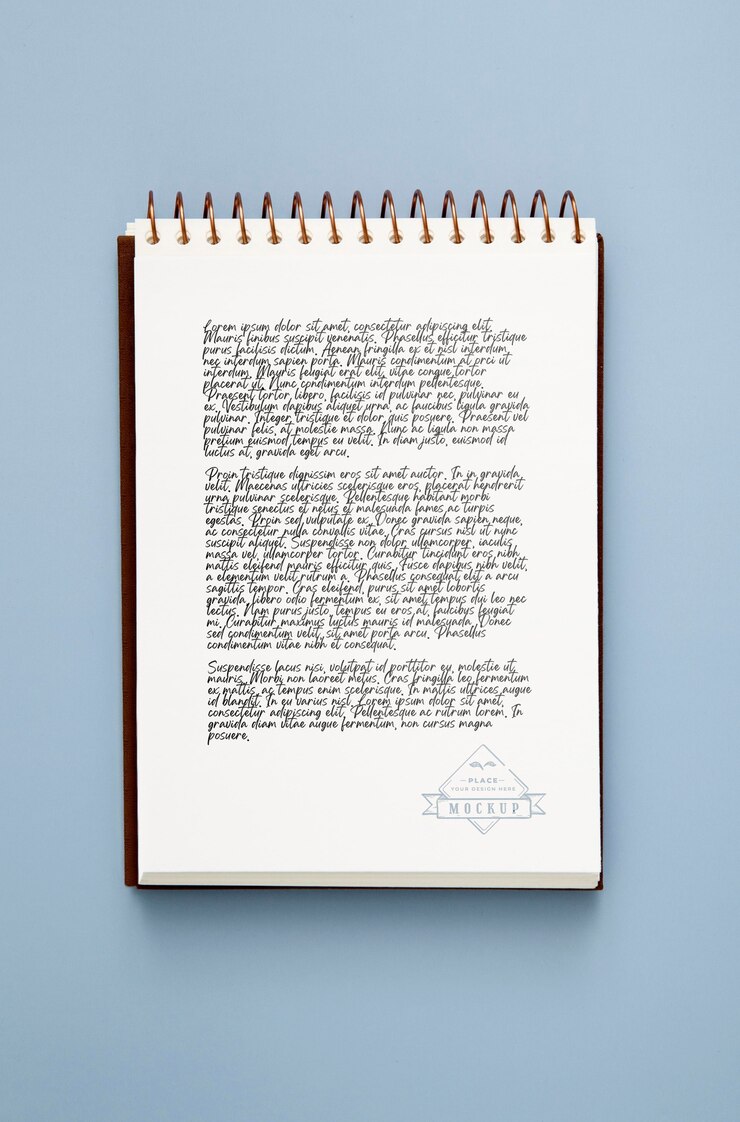 Lorem ipsum dolor sit amet, consectetur adipiscing elit.
Mauris finibus suscipit venenatis. Phasellus efficitur tristique
purus facilisis dictum. Aenean fringilla ex et nisl interdum,
nec interdum sapien porta. Mauris condimentum at orci ut
interdum. Mauris feugiat erat elit, vitae congue tortor
placerat ut. Nunc condimentum interdum pellentesque.
Praesent tortor libero, facilisis id pulvinar nec, pulvinar eu
ex. Vestibulum dapibus aliquet urna, ac faucibus ligula gravida
pulvinar. Integer tristique et dolor quis posuere. Praesent vel
pulvinar felis, at molestie massa. Nunc ac ligula non massa
pretium euismod tempus eu velit. In diam justo, euismod id
luctus at, gravida eget arcu.
Proin tristique dignissim eros sit amet auctor. In in gravida
velit. Maecenas ultricies scelerisque eros, placerat hendrerit
urna pulvinar scelerisque. Pellentesque habitant morbi
tristique senectus et netus et malesuada fames ac turpis
egestas. Proin sed vulputate ex. Donec gravida sapien neque,
ac consectetur nulla convallis vitae. Cras cursus nisl ut nunc
suscipit aliquet. Suspendisse non dolor ullamcorper, iaculis
massa vel, ullamcorper tortor. Curabitur tincidunt eros nibh,
mattis eleifend mauris efficitur quis. Fusce dapibus nibh velit,
a elementum velit rutrum a. Phasellus consequat elit a arcu
sagittis tempor. Cras eleifend, purus sit amet lobortis
gravida, libero odio fermentum ex, sit amet tempus dui leo nec
lectus. Nam purus justo, tempus eu eros at, faucibus feugiat
mi. Curabitur maximus luctus mauris id malesuada. Donec
sed condimentum velit, sit amet porta arcu. Phasellus
condimentum vitae nibh et consequat.
Suspendisse lacus nisi, volutpat id porttitor eu, molestie ut
mauris. Morbi non laoreet metus. Cras fringilla leo fermentum
ex mattis, ac tempus enim scelerisque. In mattis ultrices augue
id blandit. In eu varius nisl. Lorem ipsum dolor sit amet,
consectetur adipiscing elit. Pellentesque ac rutrum lorem. In
gravida diam vitae augue fermentum, non cursus magna
posuere.
PLACE
YOUR DESIGN HERE
MOCKUP